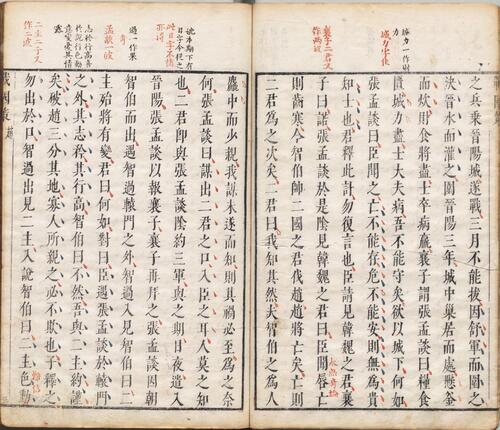 之兵乘晉陽城遂戰三月不能拔因舒軍而圍之
決晉水而灌之圍晉陽三年城中巢居而處懸釜
而炊財食將盡士卒病羸襄子謂張孟談曰糧食
匱城力盡士大夫病吾不能守矣欲以城下何如
張孟談曰臣聞之亡不能存危不能安則無為貴
知士也君釋此計勿復言也臣請見韓魏之君襄
子曰諾張孟談於是陰見韓魏之君曰臣聞唇亡
則齒寒今智伯帥二國之君伐趙趙將亡矣亡則
二君為之次矣二君曰我知其然夫智伯之為人
城力字佳
襄子二君又
麤中而少親我謀未遂而知則其禍必至為之奈
何張孟談曰謀出二君之口入臣之耳人莫之知
也二君即與張孟談陰約三軍與之期日夜遣入
晉陽張孟談以報襄子襄子再拜之張孟談因朝
智伯而出遇智過轅門之外智過入見智伯曰二
主殆將有變君曰何如對曰臣遇張孟談於轅門
之外其志矜其行高智伯曰不然吾與二主約謹
矣破趙三分其地寡人所親之必不欺也子釋之
勿出於口智過出見二主入說智伯曰二主色動
日字今從之
過一作果
孟談一收
二主二子又
作二段